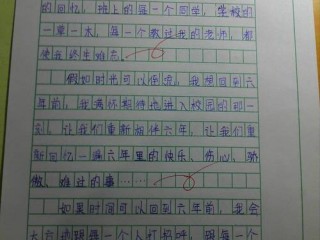 的回忆，班上的每一个同学，学校的
一草一木，每一个教过我的老师，都
使我终生难忘。
假如时光可以倒流，我想回到六
年前，我满怀期待地进入校园的那一
刻，让我们重新相伴六年，让我们重
新回忆一遍六年里的快乐、伤心、骄
傲、难过的事……
如果时间可以回到六年前，我会
大方地跟每一个人打招呼，跟每一个